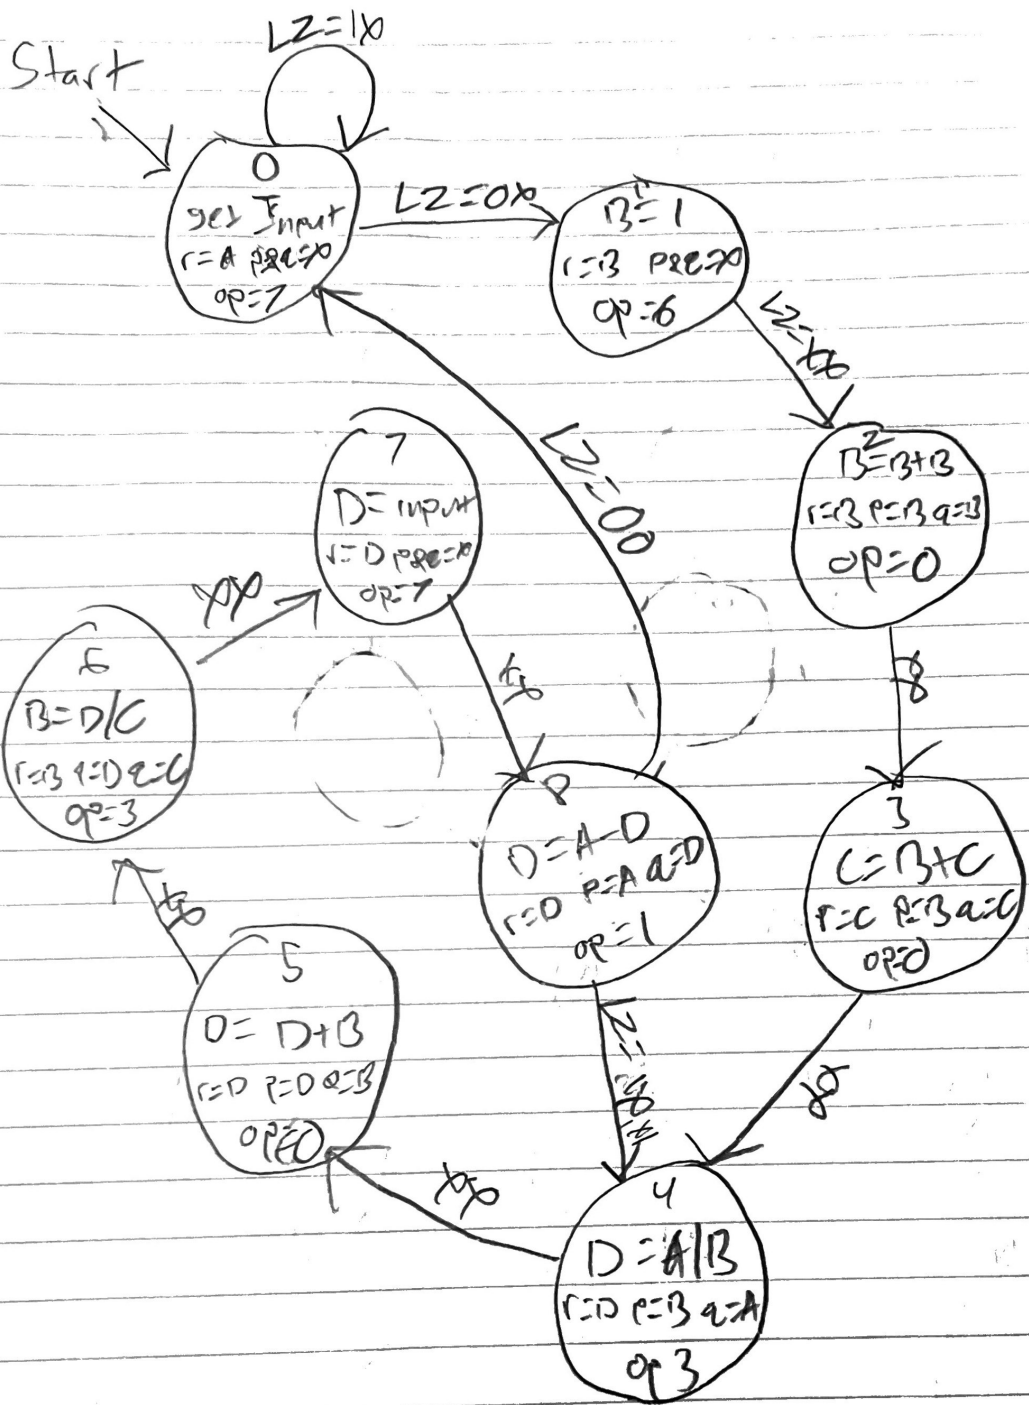 Start
LZ=1X
0
get Input
r=A p&q=X
op=7
LZ=0X
1
B=1
r=B p&q=X
op=6
LZ=XX
2
B=B+B
r=B p=B q=B
op=0
XX
3
C=B+C
r=C p=B q=C
op=0
XX
4
D=A/B
r=D p=B q=A
op 3
XX
5
D= D+B
r=D p=D q=B
op=0
XX
6
B=D/C
r=B q=D q=C
op=3
XX
7
D=input
r=D p&q=X
op=7
XX
8
D=A-D
r=D p=A q=D
op=1
LZ=00
LZ=